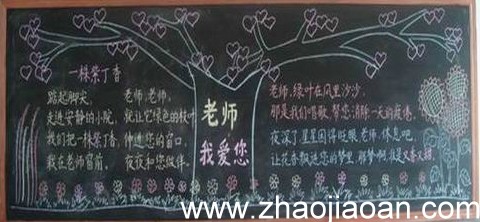 一株紫丁香
踮起脚尖,
走进安静的小院,
我们把一株紫丁香,
栽在老师窗前。
老师,老师,
就让它绿色的枝叶,
伸进您的窗口,
夜夜和您做伴。
老师
我爱您
老师,绿叶在风里沙沙,
那是我们唱歌,帮您消除一天的疲倦。
夜深了,星星困得眨眼,老师,休息吧,
让花香飘进您的梦里,那梦啊,准是又香又甜
www.zhaojiaoan.com